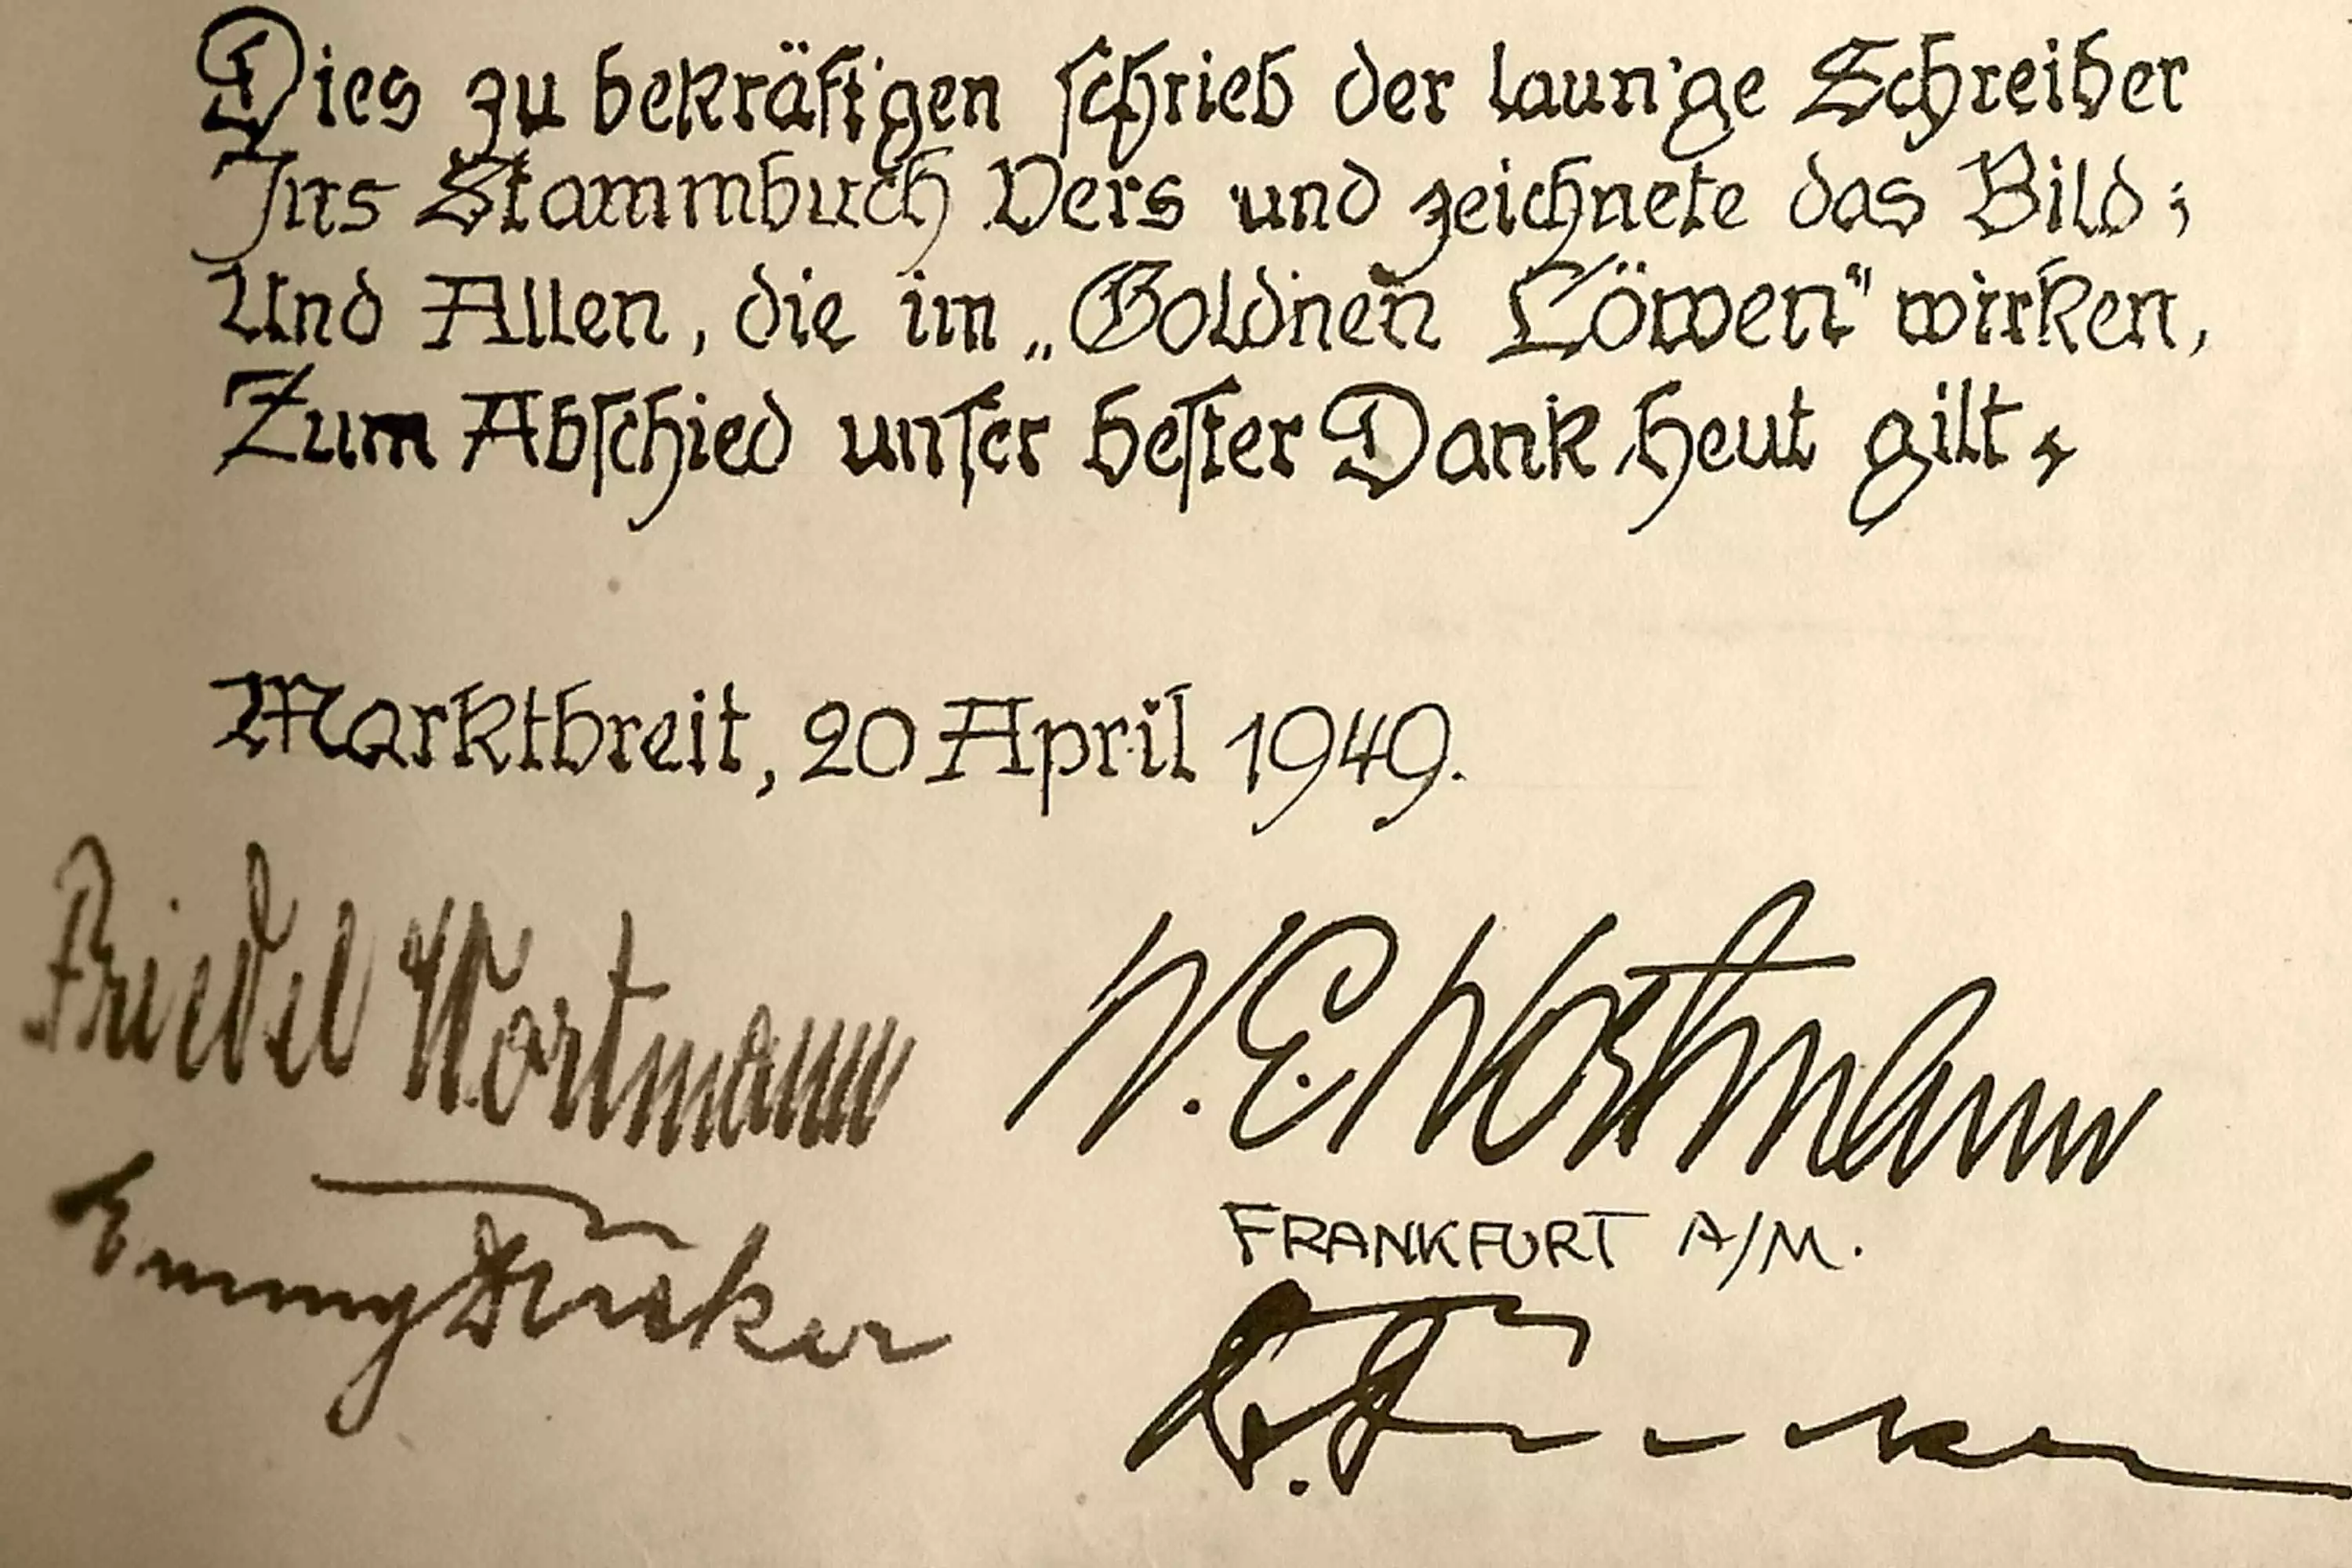 Dies zu bekräft'gen schrieb der laun'ge Schreiber
Ins Stammbuch Vers und zeichnete das Bild;
Und Allen, die im „Goldnen Löwen“ wirken,
Zum Abschied unser bester Dank heut gilt.
Marktbreit, 20 April 1949.
Friedel Wortmann
W. E. Wortmann
FRANKFURT A/M.
Emmy